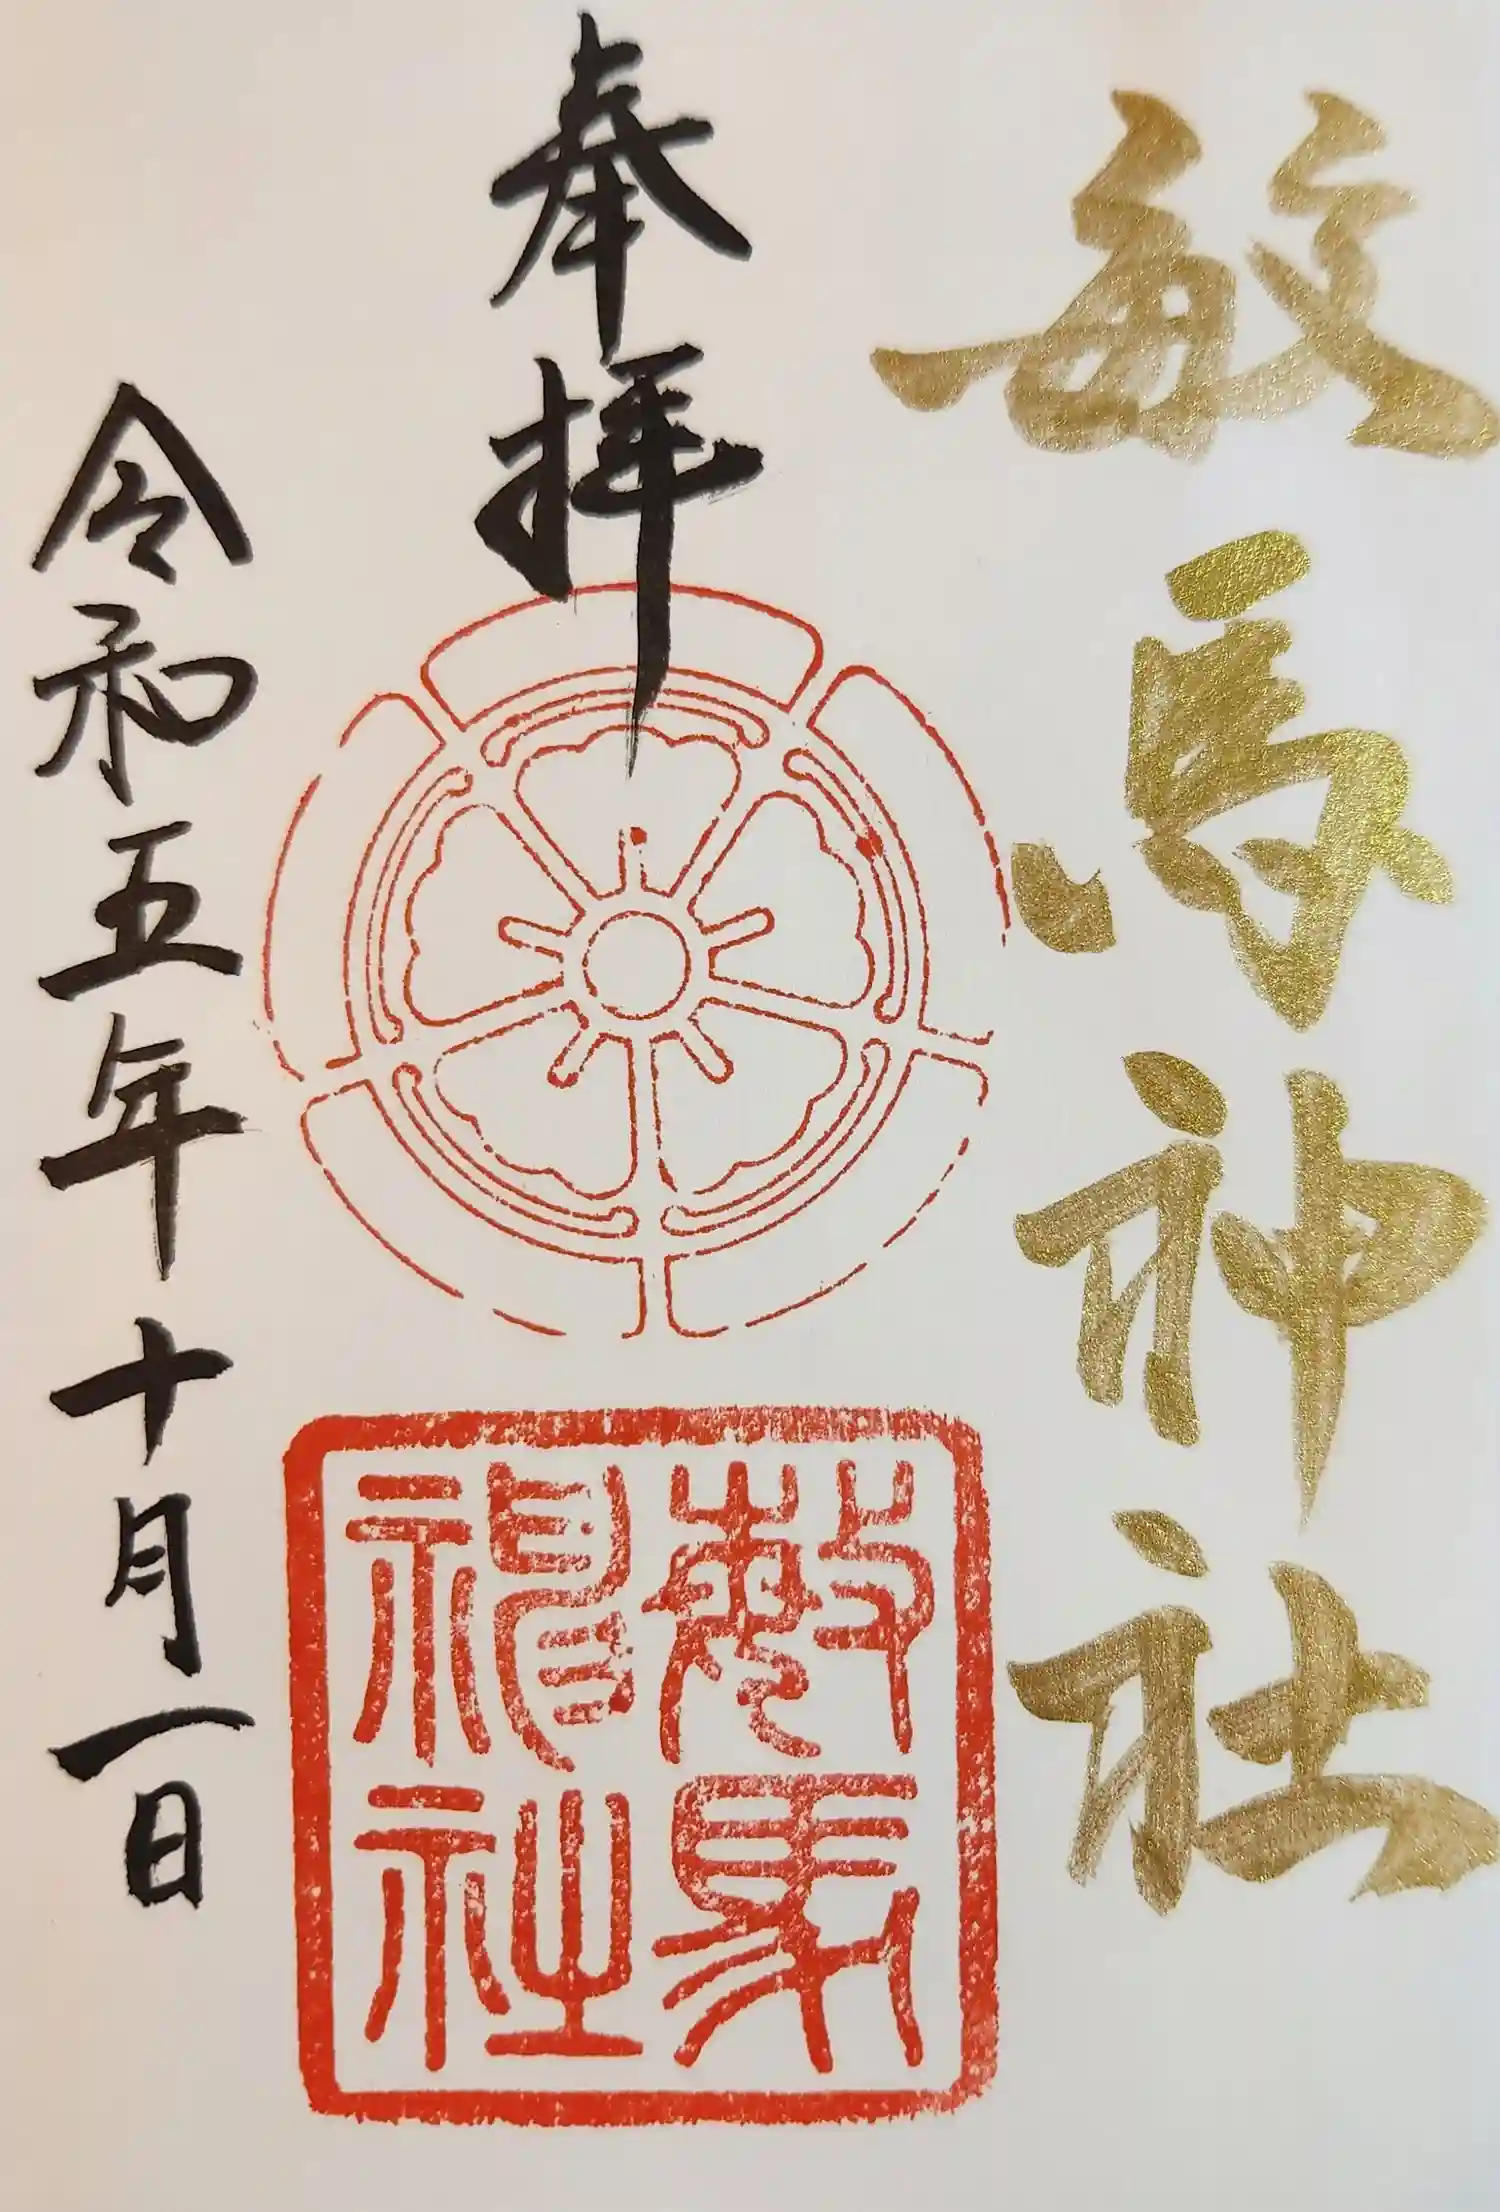 敏馬神社
奉拝
敏馬神社
令和五年十月一日